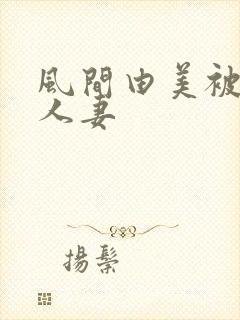 風間由美被
人妻
揚鬃